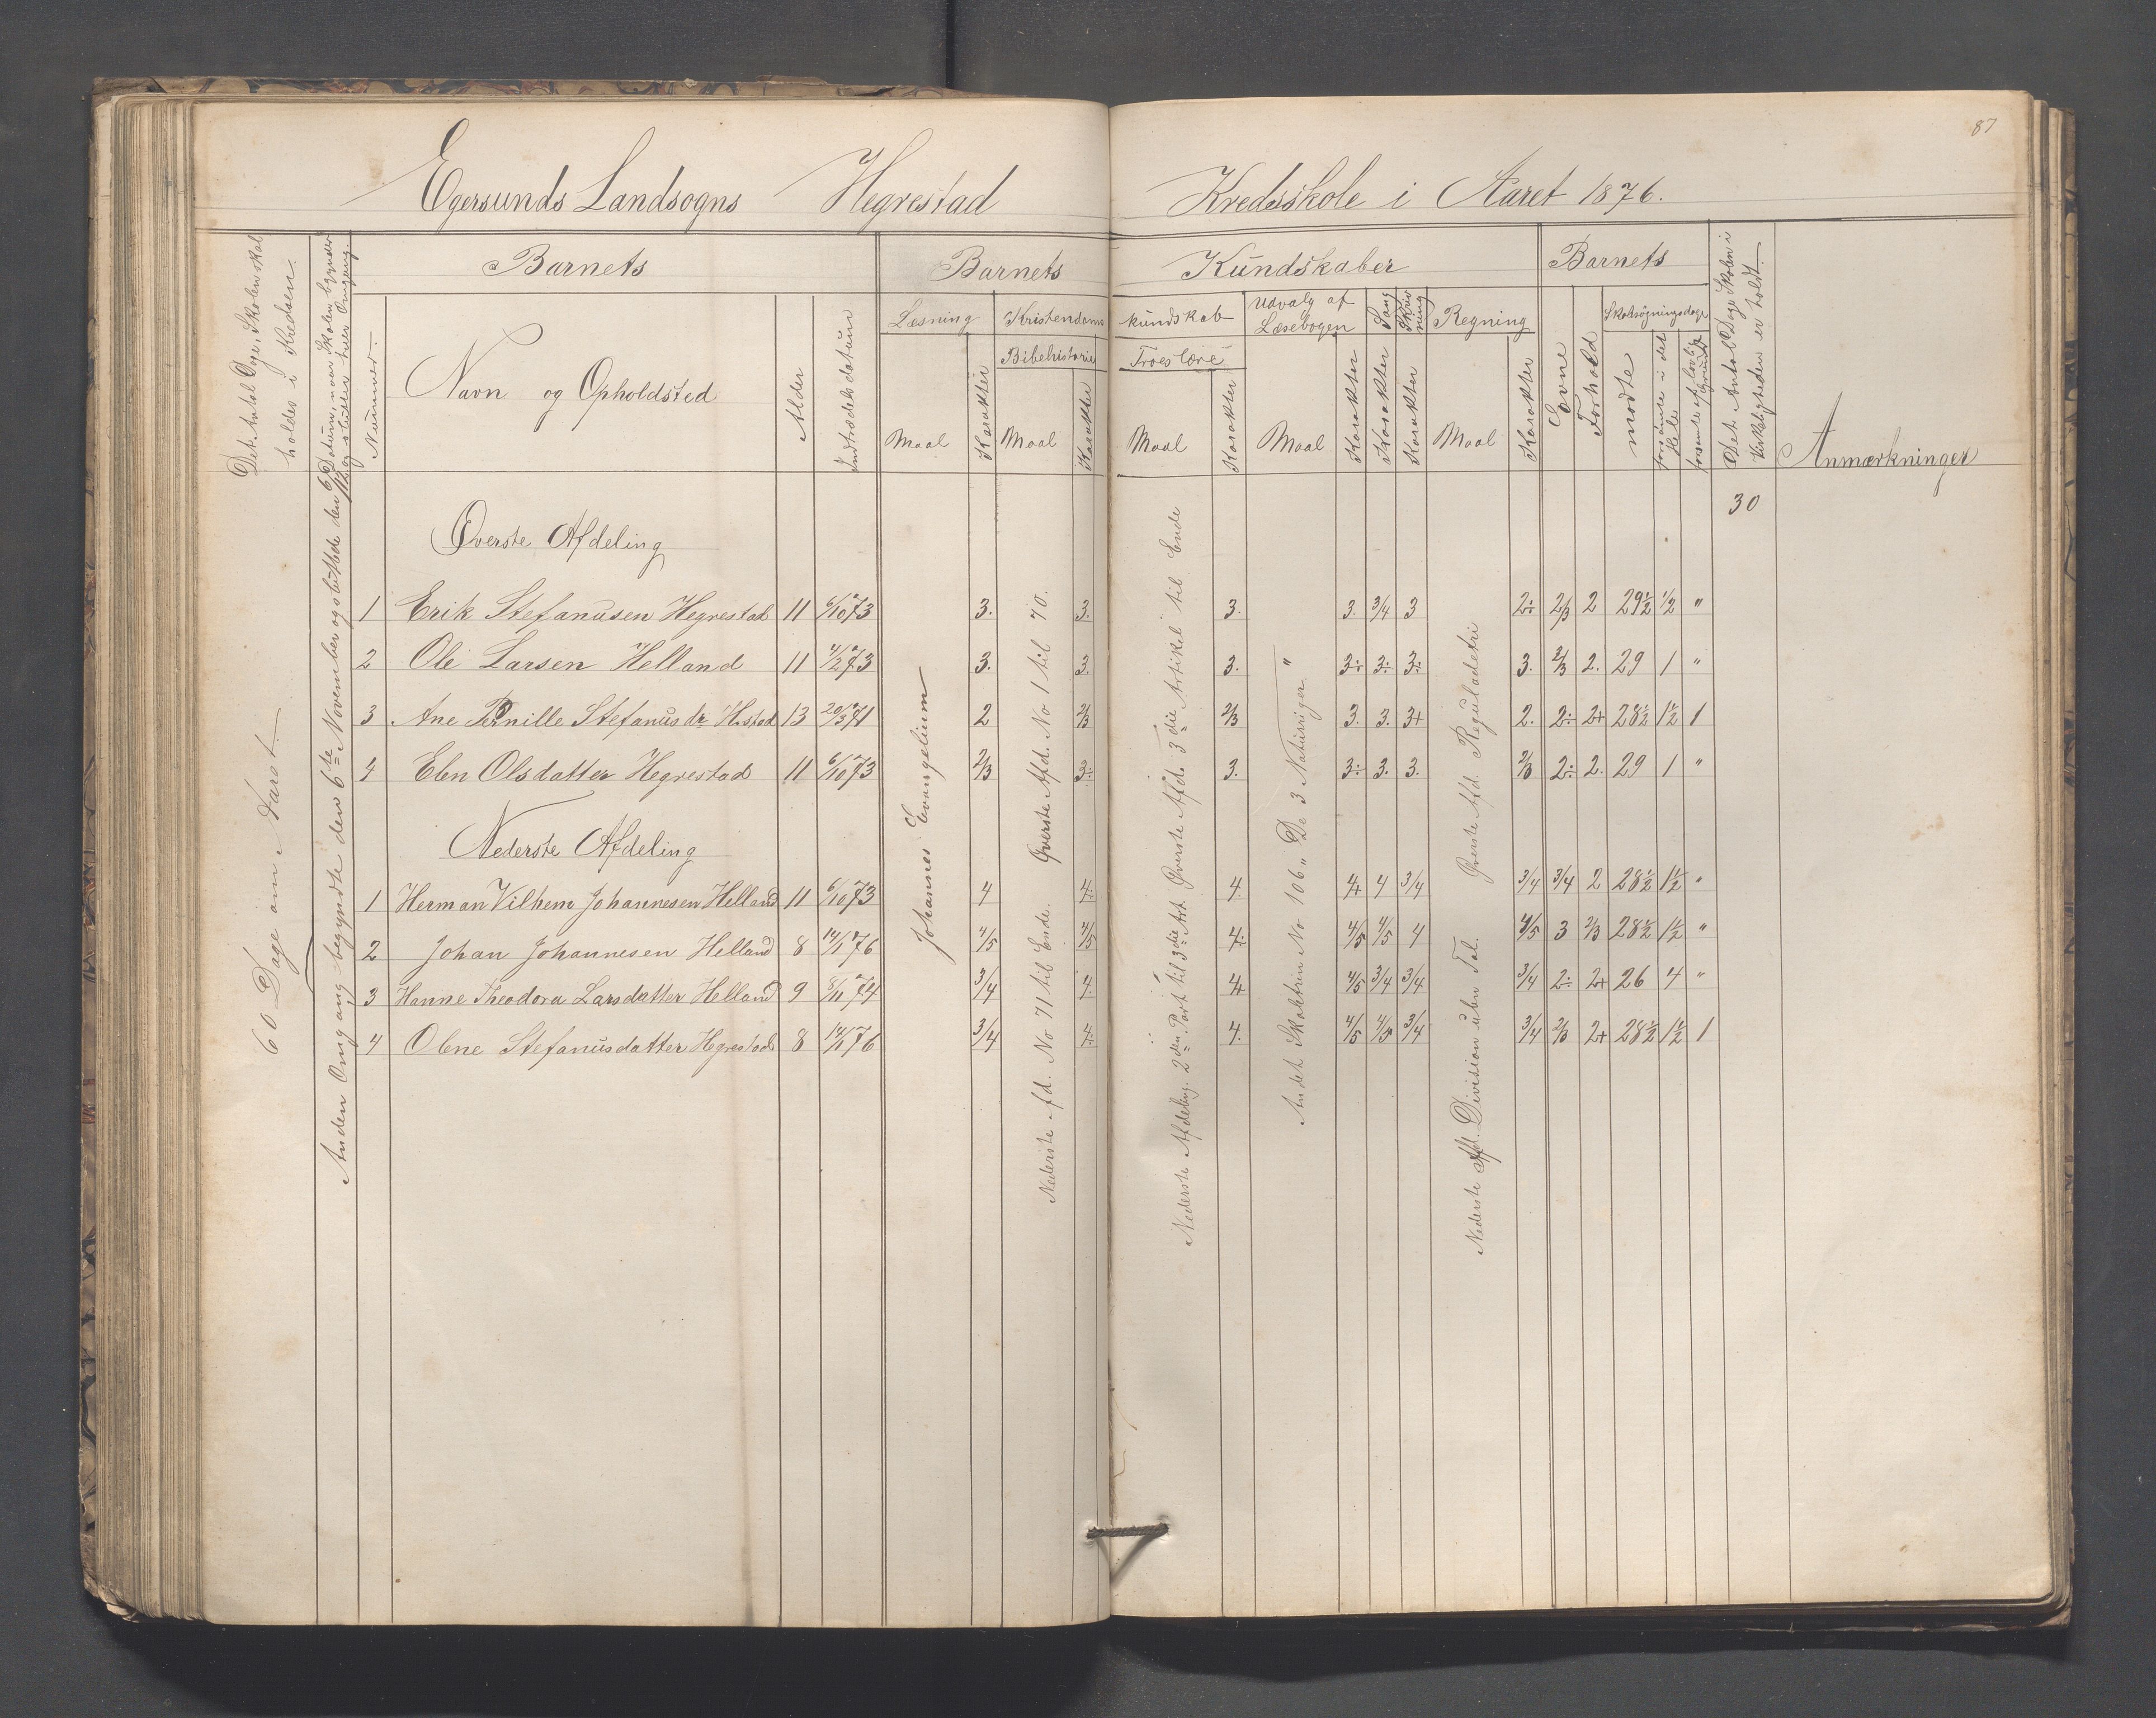 87
Egersunds Landsogns Hegrestad Kredsskole i Aaret 1876.
Det Antal Dage, Skolen skal holdes i Kredsen.
Datum, naar Skolen begynder og slutter hver Omgang.
Nummer.
Barnets
Navn og Opholdsted
Alder
Indtrædelsdatum
Barnets Kundskaber
Læsning
Maal
Karakter
Kristendoms kundskab
Bibelhistorie
Maal
Karakter
Troeslære
Maal
Karakter
Udvalg af Læsebogen
Maal
Karakter
Sang
Karakter
Skrivning
Karakter
Regning
Maal
Karakter
Barnets
Evne
Forhold
Skolesøgningsdage
mødte
forsømte i det Hele
forsømte af lovlig Grund
Det Antal Dage Skolen i Virkeligheden er holdt.
Anmærkninger
30
60 Dage om Aaret
Anden Omgang begyndte den 6te November og sluttede den
Johannes Evangelium
Øverste Afd. No 1 til 70.
Nederste Afd. No 71 til Ende.
Øverste Afd. 3die Artikel til Ende
Nederste Afdeling. 2den Part til 3die Art.
Andet Skoletrin No 106 „De 3 Naturriger"
Øverste Afd. Reguladetri
Nederste Afd. Division uben Tal.
Øverste Afdeling
1 Erik Stefanusen Hegrestad 11 6/10 73 3. 3. 3. 3. 3/4 3 2÷ 2/3 2 29½ ½ "
2 Ole Larsen Helland 11 4/12 73 3. 3. 3. 3÷ 3÷ 3÷ 3. 2/3 2. 29 1 "
3 Ane Pernille Stefanusdr. H.stad 13 20/3 71 2 2/3 2/3 3. 3. 3+ 2. 2÷ 2+ 28½ 1½ 1
4 Elen Olsdatter Hegrestad 11 6/10 73 2/3 3÷ 3. 3÷ 3. 3. 2/3 2÷ 2. 29 1 "
Nederste Afdeling
1 Herman Vilhem Johannesen Helland 11 6/10 73 4 4÷ 4. 4+ 4 3/4 3/4 3/4 2 28½ 1½ "
2 Johan Johannesen Helland 8 14/1 76 4/5 4/5 4÷ 4/5 4/5 4 4/5 3 2/3 28½ 1½ "
3 Hanne Theodora Larsdatter Helland 9 8/11 74 3/4 4. 4+ 4/5 3/4 3/4 3/4 2÷ 2+ 26 4 "
4 Olene Stefanusdatter Hegrestad 8 14/1 76 3/4 4÷ 4. 4/5 4/5 3/4 3/4 2/3 2+ 28½ 1½ 1